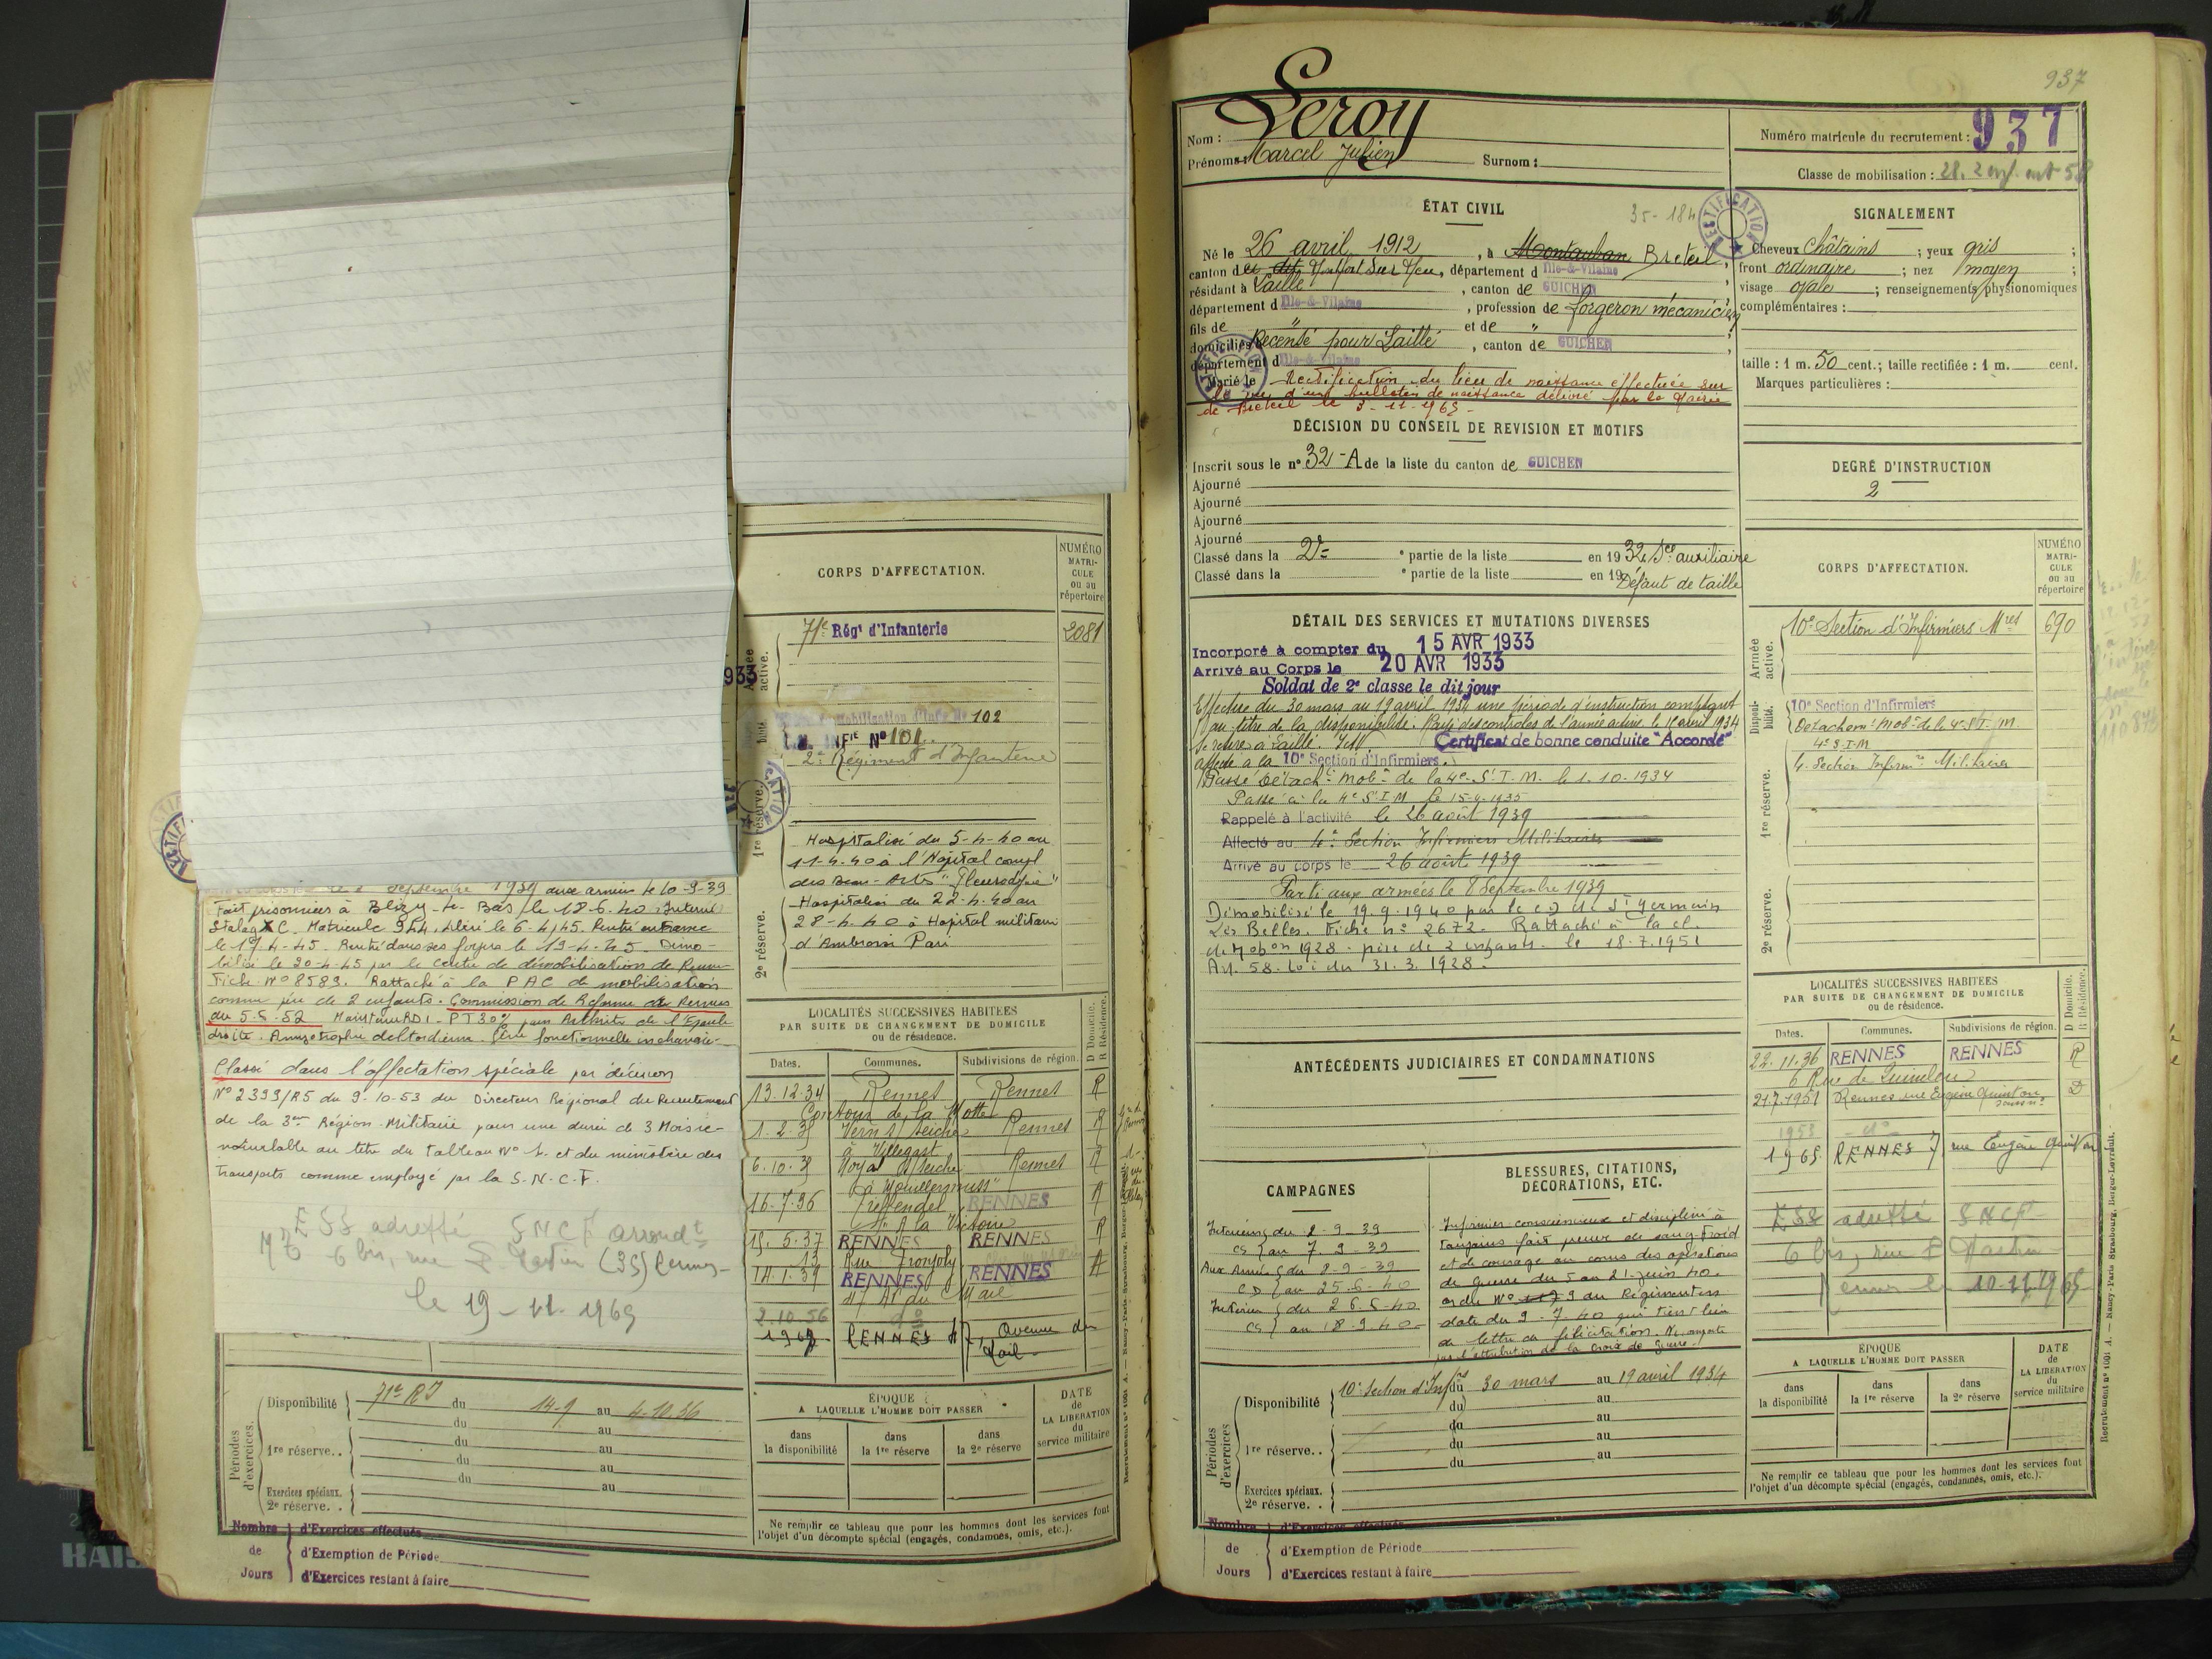 CORPS D'AFFECTATION.
NUMÉRO MATRICULE ou au répertoire
Armée active.
71e Régt d'Infanterie
2081
933
Mobilisation d'Infie No 102
INFIE No 101
2e Régiment d'Infanterie
1re réserve.
Hospitalisé du 5-4-40 au
11-4-40 à l'Hôpital compl
des Beaux-Arts "Pleurodynie"
Hospitalisé du 22-4-40 au
28-4-40 à Hôpital militaire
d'Ambroise Paré
2e réserve.
septembre 1939 aux armées le 10-9-39
Fait prisonnier à Blizy-le-Bas le 18-6-40. Interné
Stalag X C. Matricule 944. Libéré le 6-4-45. Rentré en France
le 17-4-45. Rentré dans ses foyers le 19-4-45. Démo-
bilisé le 20-4-45 par le centre de démobilisation de Rennes
Fiche No 8583. Rattaché à la PAC de mobilisation
comme père de 2 enfants. Commission de Réforme de Rennes
du 5-5-52 Maintenu RD1 - PT 30% pour Arthrite de l'Epaule
droite. Amyotrophie deltoïdienne. Gêne fonctionnelle inchangée-
Classé dans l'affectation spéciale par décision
No 2393/R5 du 9-10-53 du Directeur Régional du Recrutement
de la 3me Région Militaire pour une durée de 3 Mois re-
nouvelable au titre du Tableau No 1. et du ministère des
Transports comme employé par la S.N.C.F.
ESS adressé SNCF arrondt
6 bis, rue P. (35) Rennes
le 19-11-1965
LOCALITÉS SUCCESSIVES HABITÉES
PAR SUITE DE CHANGEMENT DE DOMICILE
ou de résidence.
D Domicile. R Résidence.
Dates. Communes. Subdivisions de région.
13.12.34 Rennes Rennes R
Contour de la Motte
1.2.35 Vern s/ Seiche Rennes R
à Villegast
6.10.35 Noyal s/ Seiche Rennes R
16-7-36 Treffendel RENNES R
"A la Victoire"
15.5.37 RENNES RENNES R
13 Rue Fronjoly
14.1.39 RENNES RENNES R
47 Av du Mail
2.10.56 do
RENNES 47, Avenue du
Mail
Périodes d'exercices
Disponibilité 71e RI du 14-9 au 4.10.56
du au
1re réserve.. du au
du au
du au
Exercices spéciaux.
2e réserve. .
ÉPOQUE
A LAQUELLE L'HOMME DOIT PASSER
dans la disponibilité
dans la 1re réserve
dans la 2e réserve
DATE de LA LIBÉRATION du service militaire
Ne remplir ce tableau que pour les hommes dont les services font
l'objet d'un décompte spécial (engagés, condamnés, omis, etc.).
Nombre de Jours
d'Exercices effectués
d'Exemption de Période
d'Exercices restant à faire
937
Nom : Leroy
Prénoms : Marcel Julien Surnom :
Numéro matricule du recrutement : 937
Classe de mobilisation : 28. 2 enf.
ÉTAT CIVIL
35-184
RECTIFICATION
Né le 26 avril 1912, à Montauban Breteil,
canton de Montfort sur Meu, département d Ille-&-Vilaine
résidant à Laillé, canton de GUICHEN
département d Ille-&-Vilaine, profession de forgeron mécanicien
fils de " et de "
domiciliés Recensé pour Laillé, canton de GUICHEN
département d Ille-&-Vilaine
Marié le
Rectification du lieu de naissance effectuée sur
le vu d'un bulletin de naissance délivré par la Mairie
de Breteil le 3-11-1965-
SIGNALEMENT
Cheveux châtains ; yeux gris ;
front ordinaire ; nez moyen ;
visage ovale ; renseignements physionomiques
complémentaires :
taille : 1 m. 50 cent.; taille rectifiée : 1 m. cent.
Marques particulières :
DÉCISION DU CONSEIL DE REVISION ET MOTIFS
Inscrit sous le no 32-A de la liste du canton de GUICHEN
Ajourné
Ajourné
Ajourné
Ajourné
Classé dans la 2e e partie de la liste en 1932, Sce auxiliaire
Classé dans la e partie de la liste en 19 Défaut de taille
DEGRÉ D'INSTRUCTION
2
DÉTAIL DES SERVICES ET MUTATIONS DIVERSES
Incorporé à compter du 15 AVR 1933
Arrivé au Corps le 20 AVR 1933
Soldat de 2e classe le dit jour
Effectue du 30 mars au 19 avril 1934 une période d'instruction comptant
au titre de la disponibilité. Rayé des contrôles de l'armée active le avril 1934
Se retire à Laillé. Certificat de bonne conduite "Accordé"
affecté à la 10e Section d'Infirmiers.
Passé Détacht mobre de la 4e S.I.M. le 1.10.1934
Passé à la 4e S.I.M le 15-4-1935
Rappelé à l'activité le 26 août 1939
Affecté au 4e Section Infirmiers Militaires
Arrivé au corps le 26 août 1939
Parti aux armées le 8 Septembre 1939
Démobilisé le 19.9.1940 par le CD de St Germain
Les Belles. Fiche no 2672. Rattaché à la cl.
de Mobon 1928 - père de 2 enfants. le 18.7.1951
Art. 58. Loi du 31.3.1928.
CORPS D'AFFECTATION.
NUMÉRO MATRICULE ou au répertoire
Armée active.
10e Section d'Infirmiers Mres 690
Disponibilité.
10e Section d'Infirmiers
Détachemt Mobre de la 4e S.I.M.
4e S.I.M
1re réserve.
4e Section Infirm. Militaires
2e réserve.
ANTÉCÉDENTS JUDICIAIRES ET CONDAMNATIONS
LOCALITÉS SUCCESSIVES HABITÉES
PAR SUITE DE CHANGEMENT DE DOMICILE
ou de résidence.
D Domicile. R Résidence.
Dates. Communes. Subdivisions de région.
22.11.36 RENNES RENNES R
6 Rue de Quineleu
21.7.1951 Rennes rue Eugène Quinton D
sans no
1953 do
1965 RENNES 7 rue Eugène Quinton
ESS adressé SNCF
6 bis, rue P.
Rennes le 10-11-1965
CAMPAGNES
Intérieur du 2-9-39
CS au 7.9-39
Aux Armées du 8-9-39
CD au 25-6-40
Intérieur du 26.6-40
CS au 18.9.40
BLESSURES, CITATIONS,
DÉCORATIONS, ETC.
Infirmier consciencieux et discipliné a
toujours fait preuve de sang-froid
et de courage au cours des opérations
de guerre du 5 au 21 juin 40.
ordre No 9 du Régiment en
date du 9-7-40 qui tient lieu
de lettre de félicitation. Ne comporte
pas l'attribution de la Croix de Guerre.
Périodes d'exercices
Disponibilité 10e Section d'Infres du 30 mars au 19 avril 1934
du au
du au
1re réserve.. du au
du au
Exercices spéciaux.
2e réserve. .
ÉPOQUE
A LAQUELLE L'HOMME DOIT PASSER
dans la disponibilité
dans la 1re réserve
dans la 2e réserve
DATE de LA LIBÉRATION du service militaire
Ne remplir ce tableau que pour les hommes dont les services font
l'objet d'un décompte spécial (engagés, condamnés, omis, etc.).
Recrutement no 1091 A. — Nancy-Paris-Strasbourg, Berger-Levrault.
Nombre de Jours
d'Exercices effectués
d'Exemption de Période
d'Exercices restant à faire